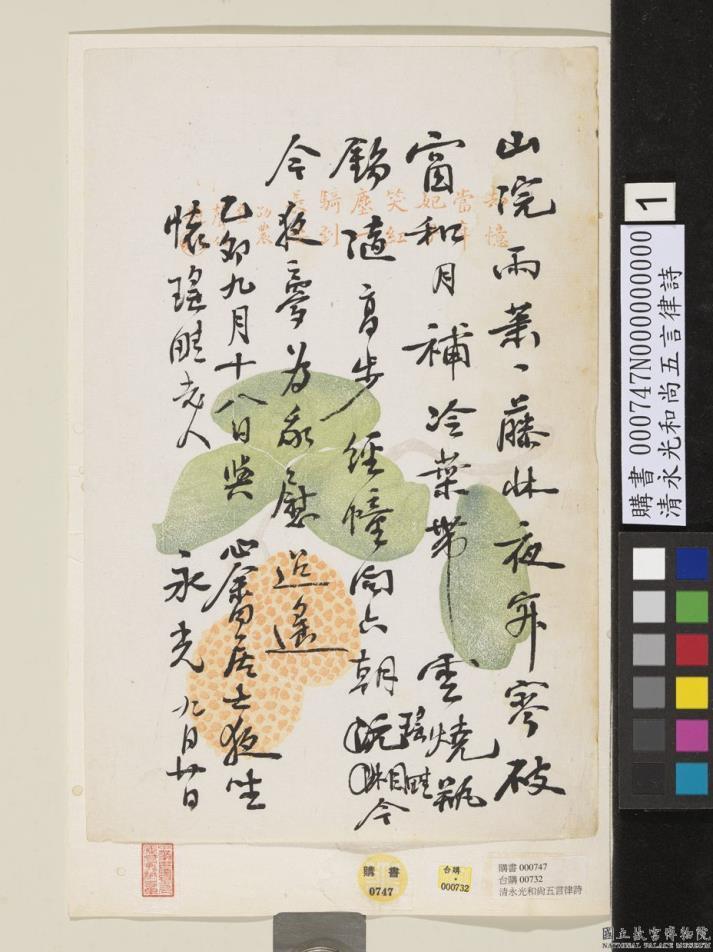 山院雨蕭〻藤牀夜寂寥破
窗和月補冷葉帶雲燒瓶
錫隨高步經幢向六朝沅湘今
瑤畦
今夜夢為我慰迢遙
乙卯九月十八日與心畬居士夜坐
懷瑤畦老人 永光 九月廿日
却憶
當
妃
笑紅
塵
騎到
1
購書 000747N000000000
清永光和尚五言律詩
購書
0747
台購
000732
購書 000747
台購 00732
清永光和尚五言律詩
國立故宮博物院
NATIONAL PALACE MUSEUM